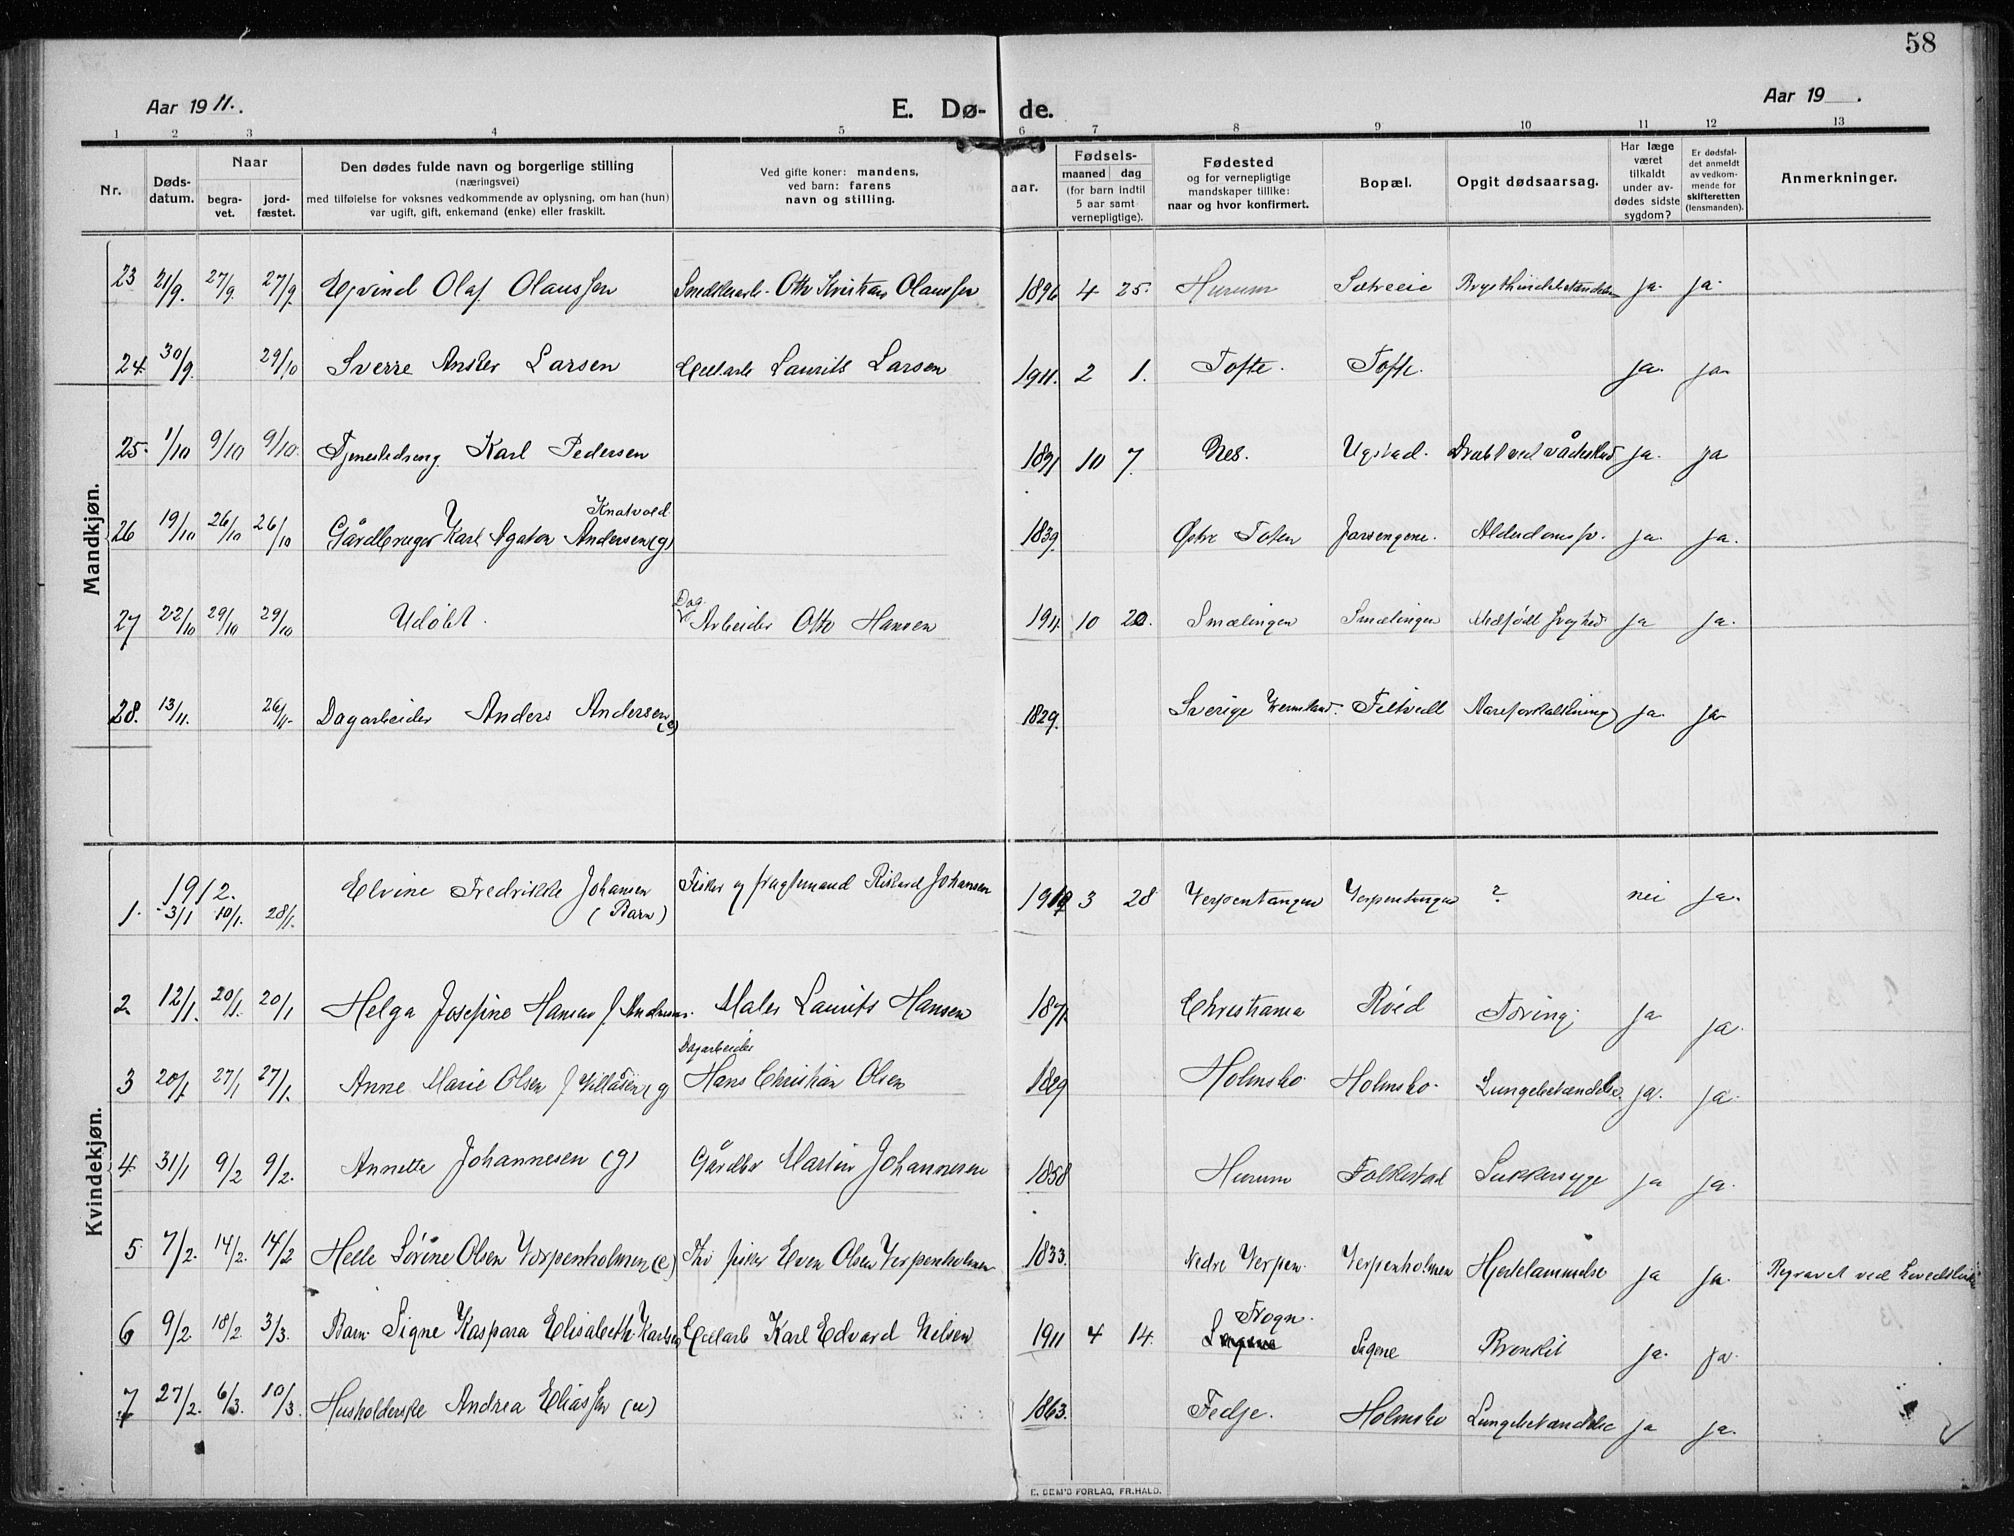 58
Aar 1911. E. Dø- de. Aar 19 .
1 2 3 4 5 6 7 8 9 10 11 12 13
Nr. Døds-datum. Naar begra-vet. jord-fæstet. Den dødes fulde navn og borgerlige stilling (næringsvei) med tilføielse for voksnes vedkommende av oplysning, om han (hun) var ugift, gift, enkemand (enke) eller fraskilt. Ved gifte koner: mandens, ved barn: farens navn og stilling. aar. Fødsels- maaned dag (for børn indtil 5 aar samt vernepligtige). Fødested og for vernepligtige mandskaper tillike: naar og hvor konfirmert. Bopæl. Opgit dødsaarsag. Har læge været tilkaldt under av-dødes sidste sygdom? Er dødsfal-det anmeldt av vedkom-mende for skifteretten (lensmanden). Anmerkninger.
Mandkjøn.
23 21/9. 27/9. 27/9 Ejvind Olaf Olaussen Otto Kristian Olaussen 1896 4 25. Hurum Sætreeie ja. ja.
24. 30/9. 29/10 Sverre Ansker Larsen Cell.arb Laurits Larsen 1911. 2 1. Tofte. Tofte. ja. ja.
25. 1/10 9/10 9/10. Tjenestedreng Karl Pedersen 1891 10 7. Nes. Ugstad. Dræbt ved vådeskud ja. ja
26 19/10 26/10 26/10 Gårdbruger Karl Agaton Andersen (g) Knatvold 1839. Østre Toten Alderdomssv. ja. ja.
27 22/10 29/10 29/10 Udøbt. Dag Arbeider Otto Hansen 1911. 10 20. Smælingen Smælingen Medfødt svaghed ja ja.
28. 13/11. 26/11. Dagarbeider Anders Andersen (e) 1829. Sverige Vermland. Filtvedt Aareforkalkning ja. ja.
Kvindekjøn.
1912.
1. 3/1 10/1. 28/1. Elvine Fredrikke Johansen (Barn) Fisker og fragtemand Rikard Johansen 3 28 Verpentangen Verpentangen ? nei ja.
2 12/1. 20/1. 20/1 Helga Josefine Hansen f. Andersen. Maler Laurits Hansen 1871. Christiania Rød Tæring. ja ja.
3 20/1 27/1 27/1. Anne Marie Olsen (g) Dagarbeider Hans Christian Olsen 1829 Holmsbo. Holmsbo. Lungebetændelse. ja. ja.
4 31/1 9/2 9/2. Annette Johannesen (g) Gårdbr Martin Johannesen 1858 Hurum Folkestad Sukkersyge ja ja.
5 7/2. 14/2. 14/2 Helle Sørine Olsen Verpenholmen (e) fisker Even Olsen Verpenholmen 1833. Nedre Verpen. Verpenholmen Hjertelammelse ja ja. Begravet ved
6 9/2. 18/2. 3/3. Barn Signe Kaspara Elisabeth Karlsen Cellarb Karl Edvard Nilsen 1911 4 14. Frogn. Sagene Bronkit ja. ja.
7 27/2. 6/3. 10/3. Husholderske Andrea Eliassen (u) 1863. Fedje. Holmsbo Lungebetændelse ja ja.
E. SEM'S FORLAG, FR.HALD.